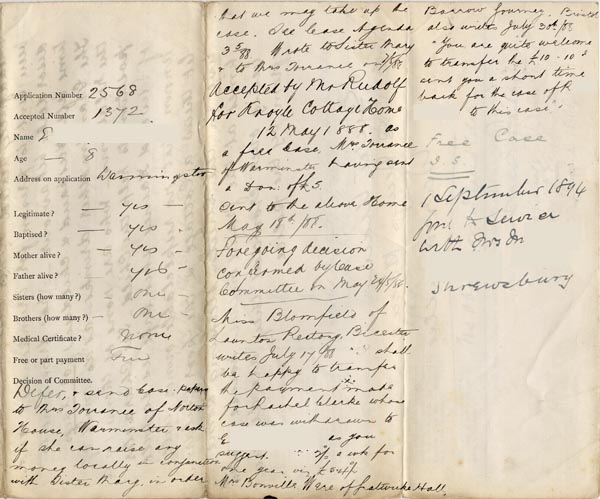 Application Number 2568
Accepted Number 1372
Name E
Age — 8
Address on application Warminster
Legitimate? — yes —
Baptised? — yes —
Mother alive? — yes —
Father alive? — yes —
Sisters (how many?) — one —
Brothers (how many?) — one —
Medical Certificate? None
Free or part payment Free
Decision of Committee.
Defer, & send Case-papers
to Mrs Torrance of Norton
House, Warminster & ask
if she can raise any
money locally in conjunction
with Sister Mary, in order
that we may take up the
case. See Case Agenda
Wrote to Sister Mary
& to Mrs Torrance
Accepted by Mr Rudolf
for Knoyle Cottage Home
12 May 1888. as
a free case, Mrs Torrance
of Warminster having sent
a Don: of £5.
Sent to the above Home
May 18th/88.
Foregoing decision
confirmed by Case
Committee on May
Miss Blomfield of
Launton Rectory, Bicester
writes July 17/88 " shall
be happy to transfer
the payment made
for Rachel Clarke whose
case was withdrawn to
E as you
suggest
one year viz
Mrs Bonville Were of Hall,
Barrow Gurney. Bristol
also writes July 30th/88
"You are quite welcome
to transfer the £10-10s
sent you a short time
back for the case of R
to this case".
Free Case
1 September 1894
Sent to Service
with Mrs M
Shrewsbury